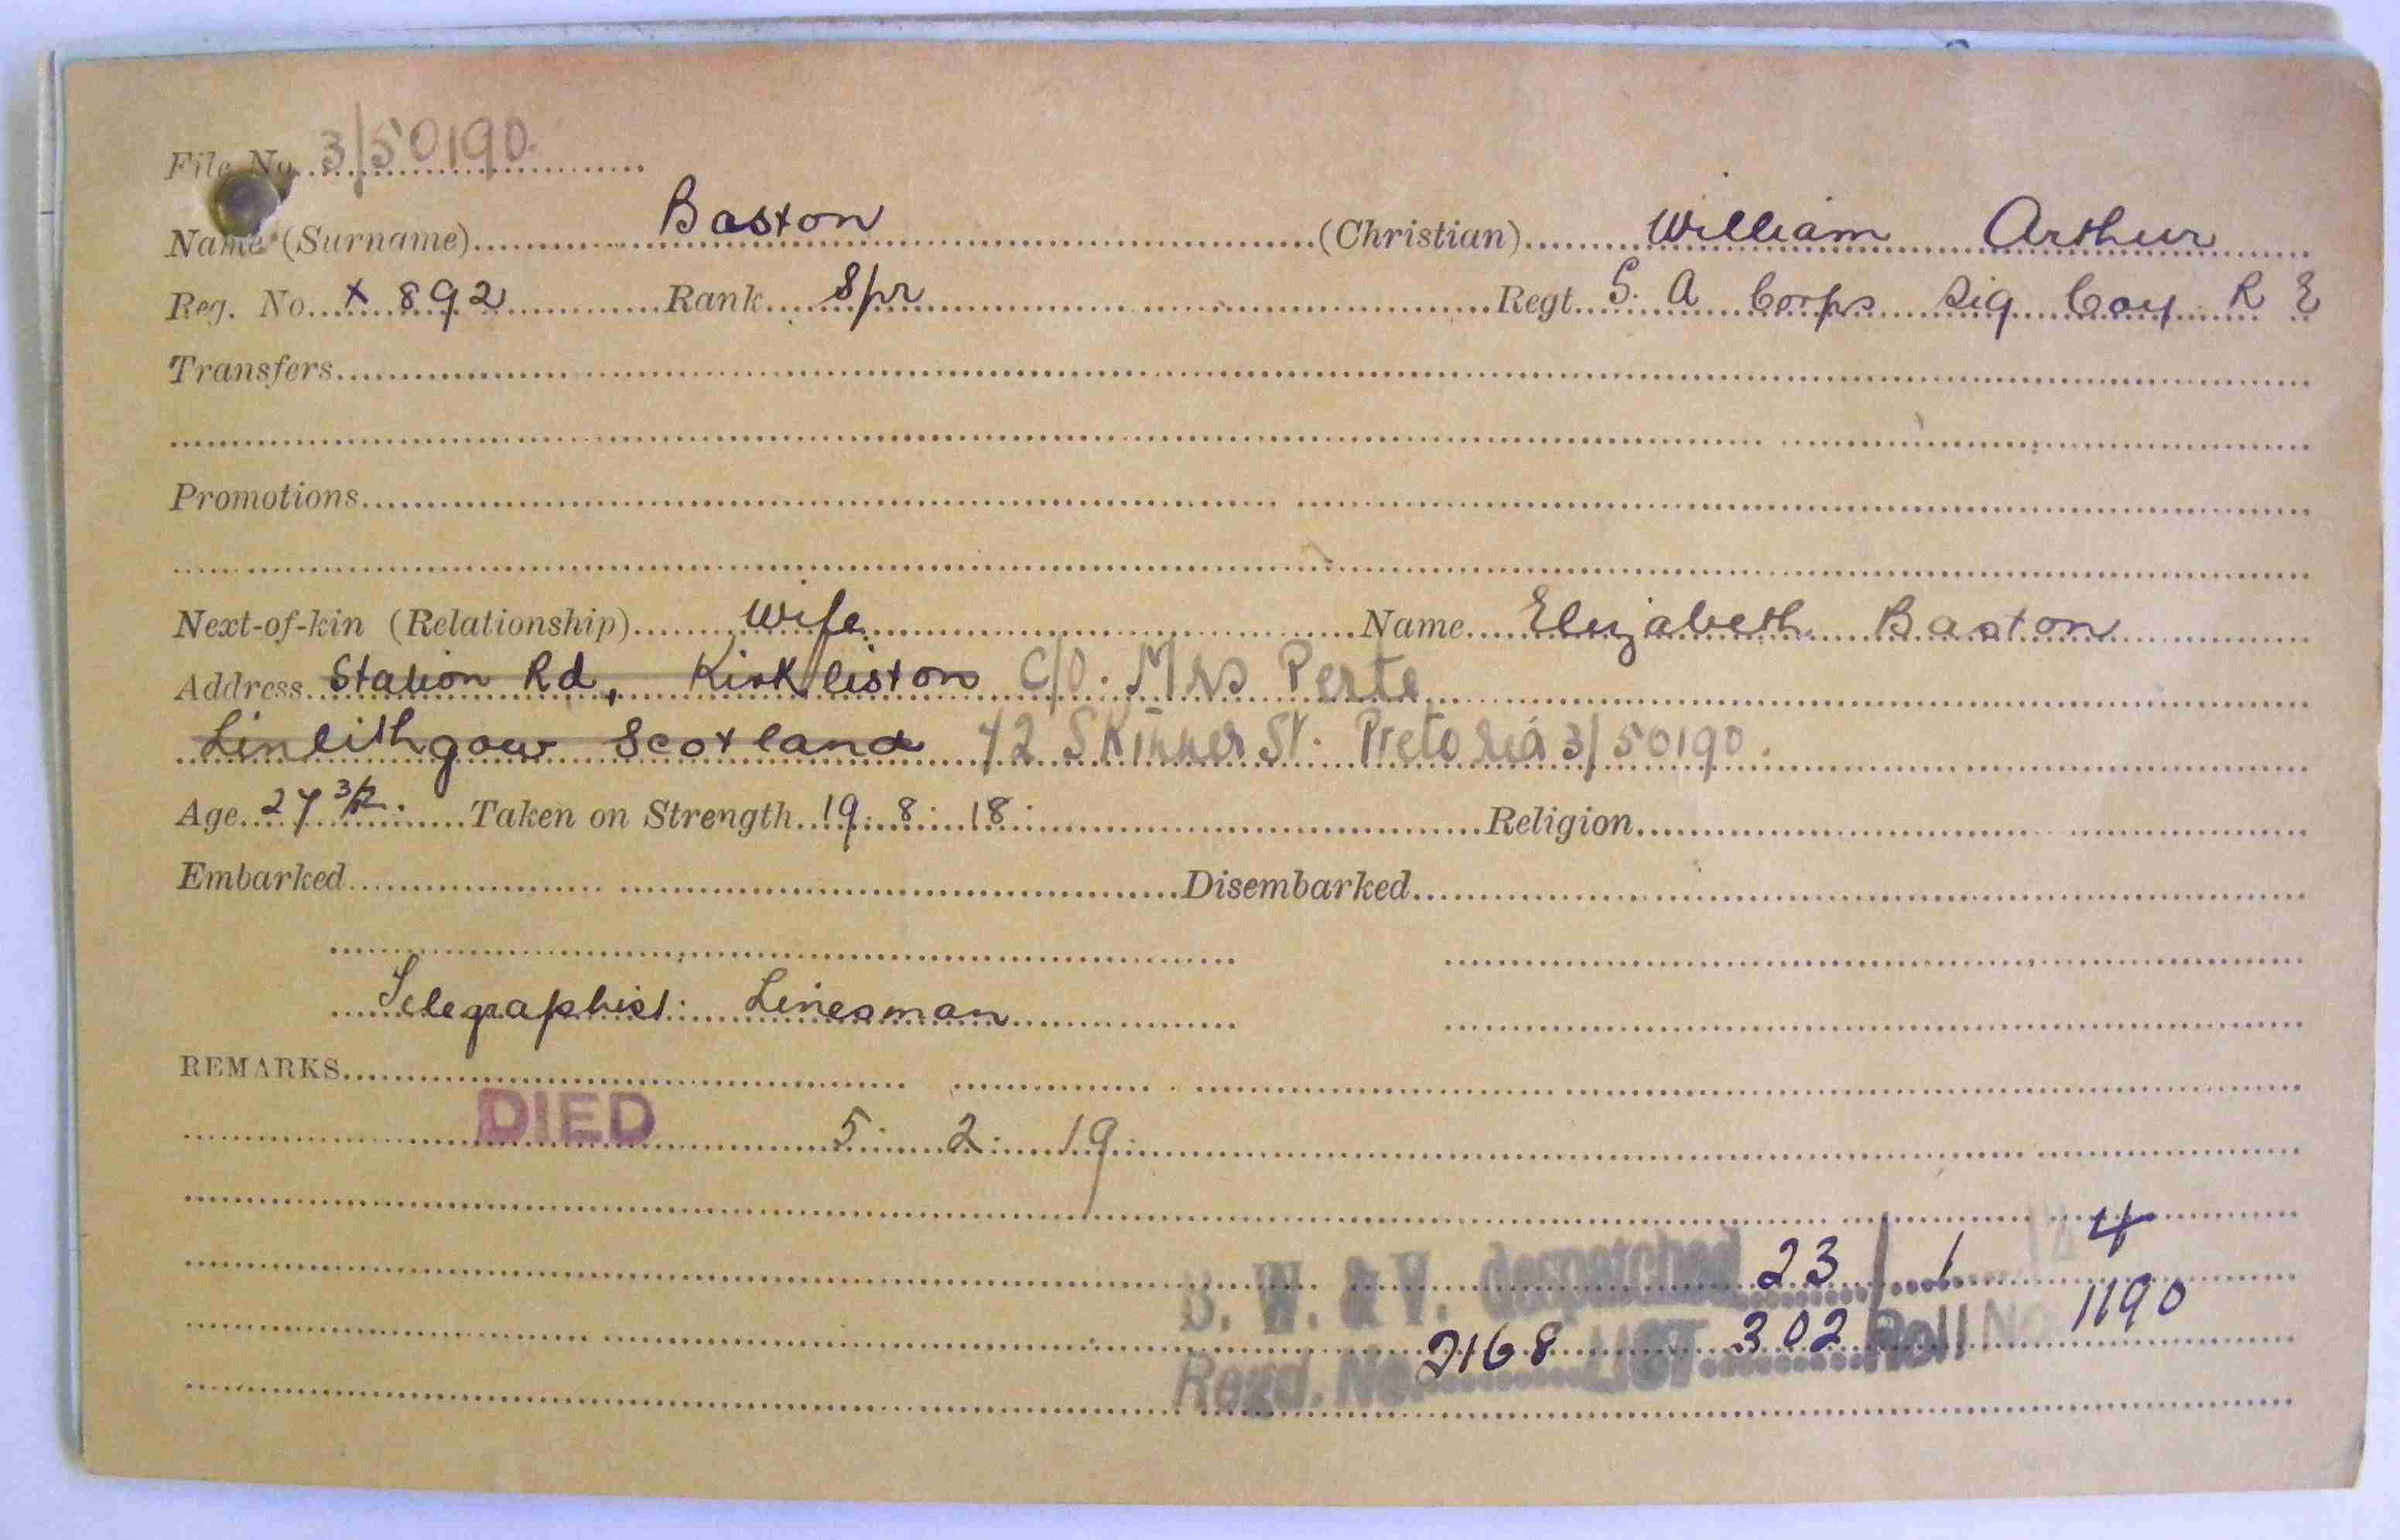 File No. 3/50190.
Name (Surname) Baston (Christian) William Arthur
Reg. No. X 892 Rank Spr Regt. S. A Corps Sig Coy. R E
Transfers
Promotions
Next-of-kin (Relationship) Wife Name Elizabeth Baston
Address Station Rd, Kirkliston C/O. Mrs Perte
Linlithgow Scotland 72 Skinner St. Pretoria 3/50190.
Age 27 3/12. Taken on Strength 19. 8. 18. Religion
Embarked Disembarked
Telegraphist. Linesman
REMARKS
DIED 5. 2. 19.
B. W. & V. despatched 23/1 4
Regd. No. 2168 LIST 302 Roll No 1190